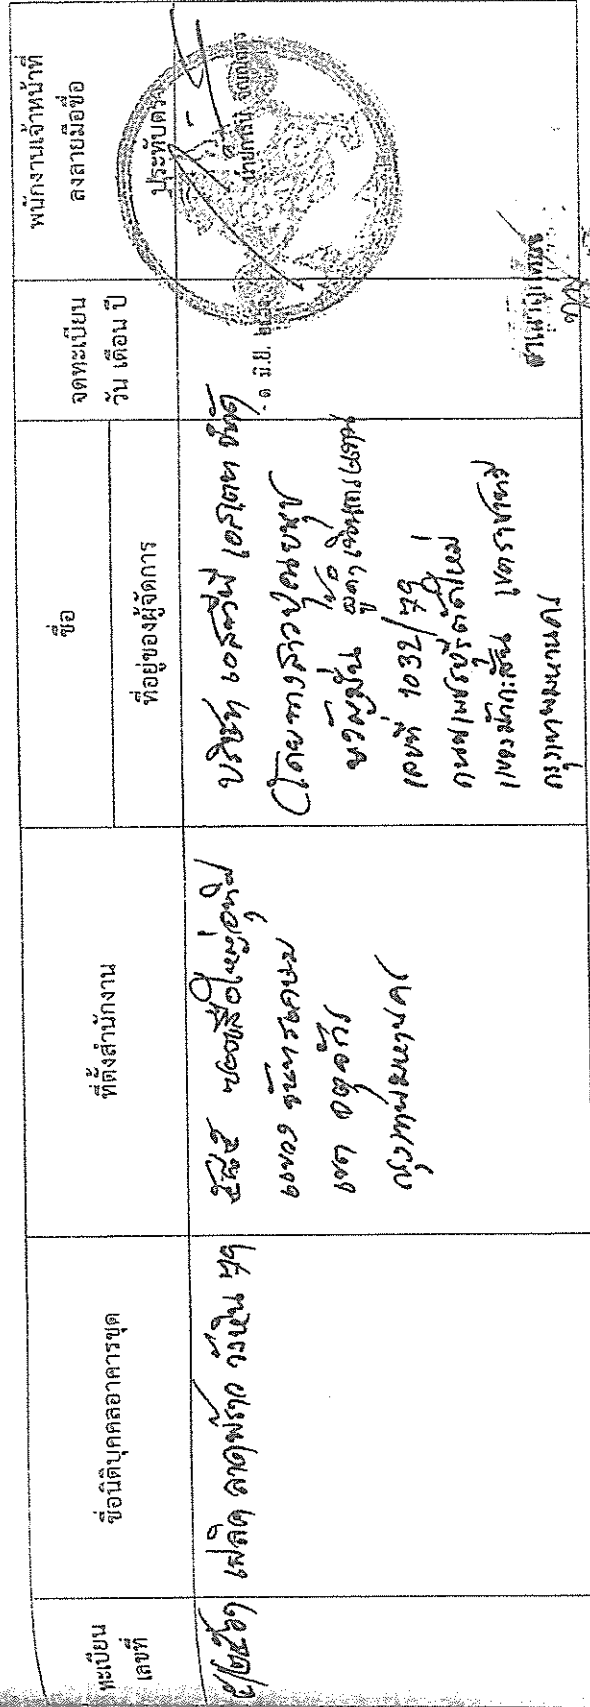 ทะเบียน
เลขที่
ชื่อนิติบุคคลอาคารชุด
ที่ตั้งสำนักงาน
ชื่อ
ที่อยู่ของผู้จัดการ
จดทะเบียน
วัน เดือน ปี
พนักงานเจ้าหน้าที่
ลงลายมือชื่อ
ประทับตรา
๕/๒๕๖๑
เฟลิค ลาดพร้าว วังหิน ๗๑
ซอยเสือใหญ่อุทิศ
แขวง จันทรเกษม
เขต จตุจักร
กรุงเทพมหานคร
บริษัท เอสซีพี เอสเตท จำกัด
(โดยนางสาว
ผู้ดำเนินการแทน
เลขที่ 1032/79
ถนนเพชรบุรีตัดใหม่
แขวงมักกะสัน เขตราชเทวี
กรุงเทพมหานคร
มิ.ย.
สำเนาถูกต้อง